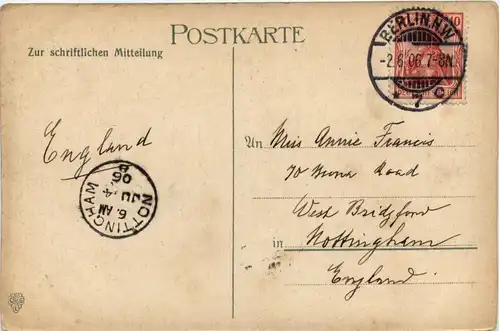 POSTKARTE
Zur schriftlichen Mitteilung
BERLIN.N.W.
10
-2.6.06.7-8N.
* 7 c
England
NOTTINGHAM
6. AM
JU 4
06
An Miss Annie Francis
70 Road
West Bridgford
in Nottingham
England